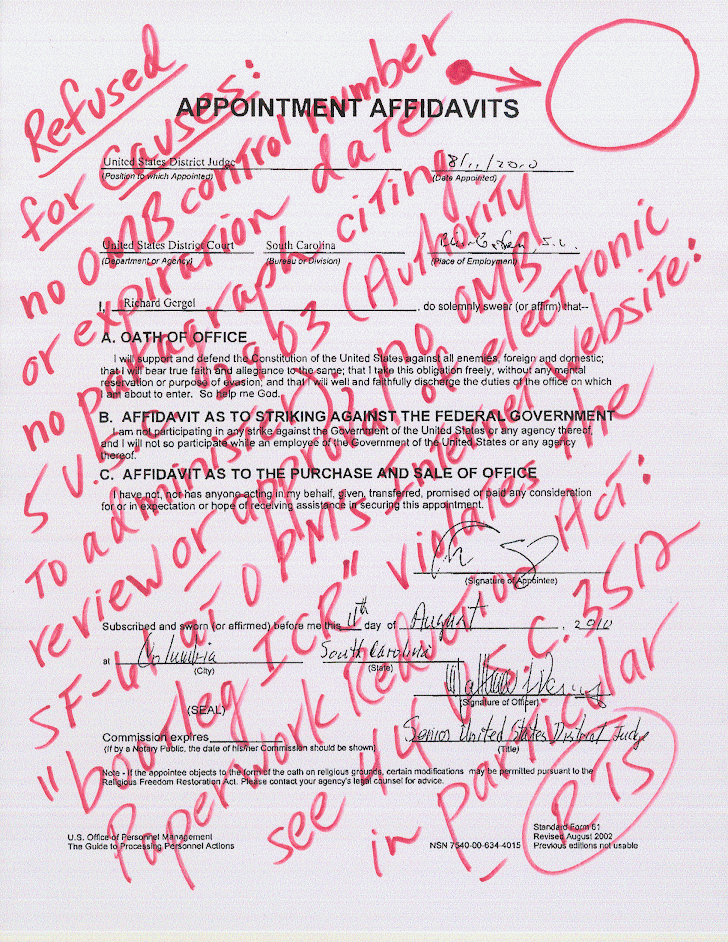 Refused
for Causes:
no OMB control number
or expiration date
no paragraph citing
5 U.S.C. 2903 (Authority
to administer); no OMB
review or approval of electronic
SF-61 at OPM's Internet website:
"bootleg ICR" violates the
Paperwork Reduction Act:
see 44 U.S.C. 3512
in particular
RTS
APPOINTMENT AFFIDAVITS
United States District Judge 8/11/2010
(Position to which Appointed) (Date Appointed)
United States District Court South Carolina
(Department or Agency) (Bureau or Division) (Place of Employment)
I, Richard Gergel, do solemnly swear (or affirm) that--
A. OATH OF OFFICE
I will support and defend the Constitution of the United States against all enemies, foreign and domestic;
that I will bear true faith and allegiance to the same; that I take this obligation freely, without any mental
reservation or purpose of evasion; and that I will well and faithfully discharge the duties of the office on which
I am about to enter. So help me God.
B. AFFIDAVIT AS TO STRIKING AGAINST THE FEDERAL GOVERNMENT
I am not participating in any strike against the Government of the United States or any agency thereof,
and I will not so participate while an employee of the Government of the United States or any agency
thereof.
C. AFFIDAVIT AS TO THE PURCHASE AND SALE OF OFFICE
I have not, nor has anyone acting in my behalf, given, transferred, promised or paid any consideration
for or in expectation or hope of receiving assistance in securing this appointment.
(Signature of Appointee)
Subscribed and sworn (or affirmed) before me this 11th day of August, 2010
at Columbia South Carolina
(City) (State)
(SEAL) (Signature of Officer)
Commission expires Senior United States District Judge
(If by a Notary Public, the date of his/her Commission should be shown) (Title)
Note - If the appointee objects to the form of the oath on religious grounds, certain modifications may be permitted pursuant to the
Religious Freedom Restoration Act. Please contact your agency's legal counsel for advice.
U.S. Office of Personnel Management
The Guide to Processing Personnel Actions
NSN 7540-00-634-4015
Standard Form 61
Revised August 2002
Previous editions not usable